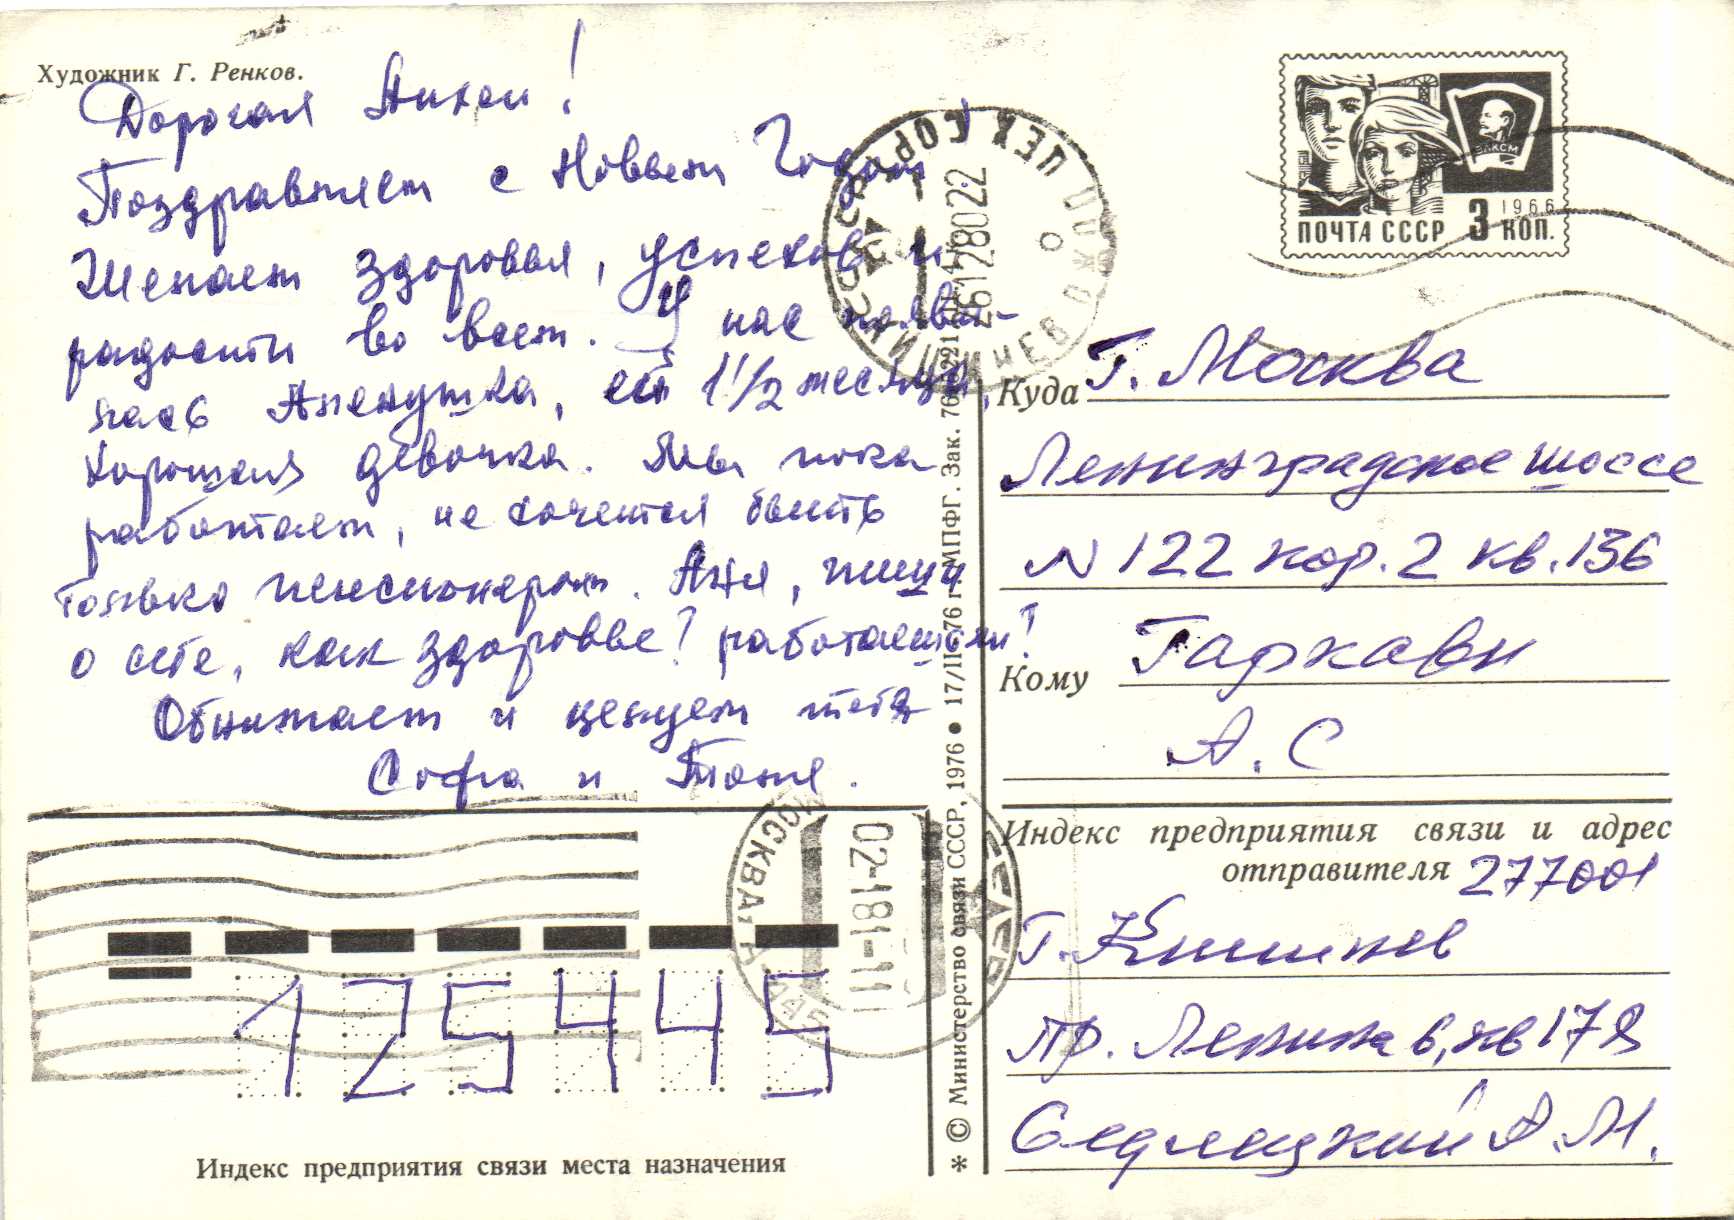 Художник Г. Ренков.
Дорогая Анхен!
Поздравляем с Новым Годом
Желаем здоровья, успехов и
радости во всем. У нас появи-
лась Аленушка, ей 1 1/2 месяца,
хорошая девочка. Мы пока
работаем, не хочется быть
только пенсионером. Аня, пиши
о себе, как здоровье? работаешь ли?
Обнимаем и целуем тебя
Софа и Толя.
ПОЧТА СССР 3 КОП.
1966
ВЛКСМ
26128022
Куда г. Москва
Ленинградское шоссе
N 122 кор. 2 кв. 136
Кому Гаркави
А. С
Индекс предприятия связи и адрес
отправителя 277001
г. Кишинев
пр. Ленина 6, кв 178
Седлецкий А. М.
МОСКВА
02-181-11
125445
Индекс предприятия связи места назначения
* © Министерство связи СССР, 1976 ● 17/II-76 г. МПФГ. Зак. 76